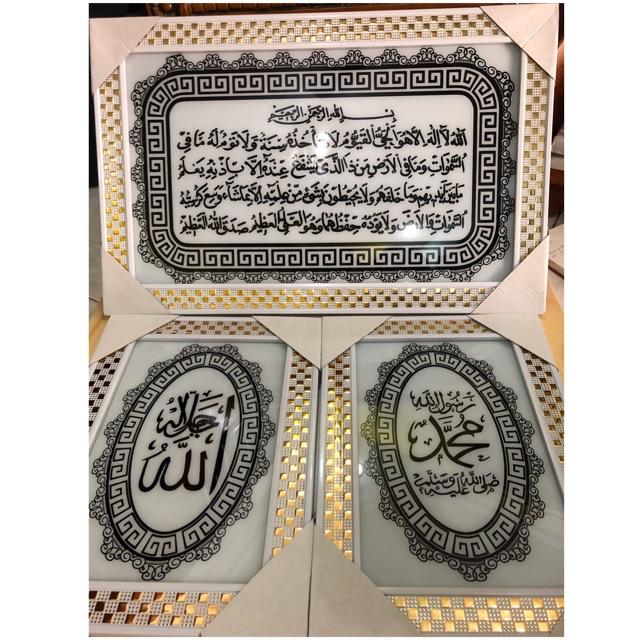 بسم الله الرحمن الرحيم
الله لا اله الا هو الحي القيوم لا تأخذه سنة ولا نوم له ما في
السموات وما في الارض من ذا الذي يشفع عنده الا باذنه يعلم
ما بين ايديهم وما خلفهم ولا يحيطون بشيء من علمه الا بما شاء وسع كرسيه
السموات والارض ولا يؤده حفظهما وهو العلي العظيم صدق الله العظيم
جل جلاله
الله
رسول الله
محمد
صلى الله عليه وسلم